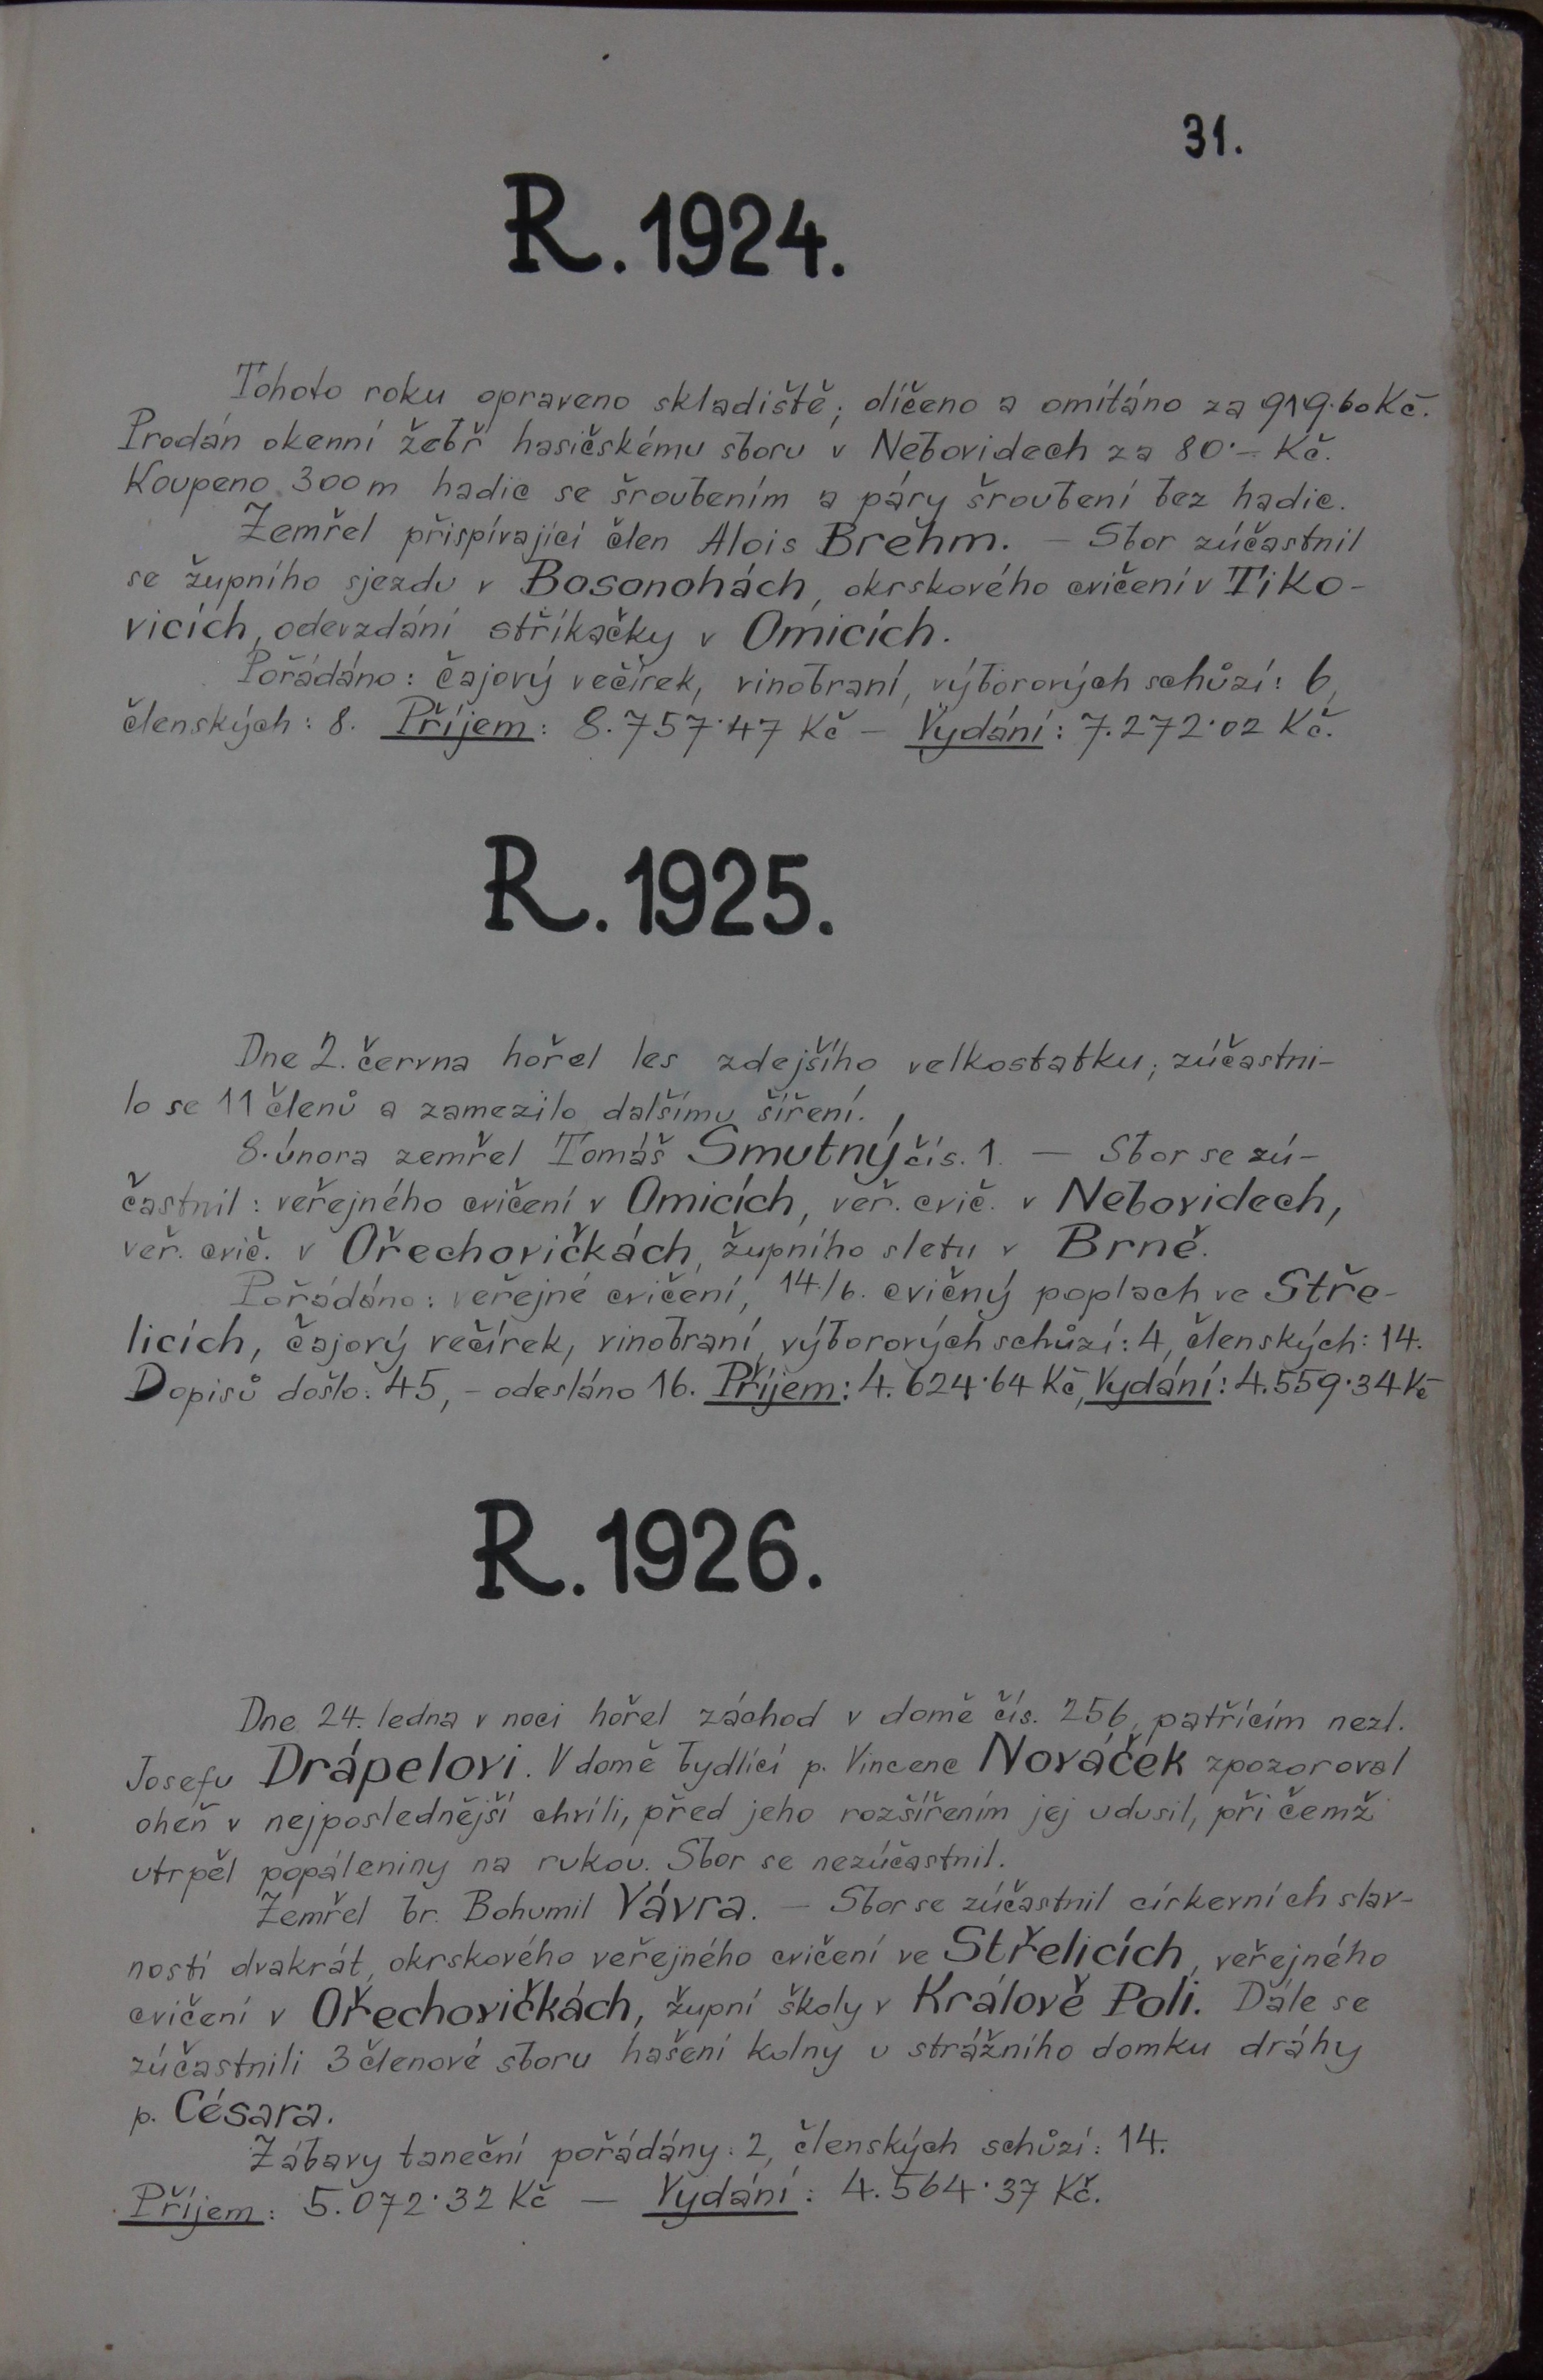 31.
R. 1924.
Tohoto roku opraveno skladiště; líčeno a omítáno za 919·60 Kč.
Prodán okenní žebř hasičskému sboru v Nebovidech za 80·– Kč.
Koupeno 300 m hadic se šroubením a páry šroubení bez hadic.
Zemřel přispívající člen Alois Brehm. – Sbor zúčastnil
se župního sjezdu v Bosonohách, okrskového cvičení v Tiko-
vicích, odevzdání stříkačky v Omicích.
Pořádáno: čajový večírek, vinobraní, výborových schůzí: 6,
členských: 8. Příjem: 8.757·47 Kč – Vydání: 7.272·02 Kč.
R. 1925.
Dne 2. června hořel les zdejšího velkostatku; zúčastni-
lo se 11 členů a zamezilo dalšímu šíření.
8. února zemřel Tomáš Smutný čís. 1. — Sbor se zú-
častnil: veřejného cvičení v Omicích, veř. cvič. v Nebovidech,
veř. cvič. v Ořechovičkách, župního sletu v Brně.
Pořádáno: veřejné cvičení, 14./6. cvičný poplach ve Stře-
licích, čajový večírek, vinobraní, výborových schůzí: 4, členských: 14.
Dopisů došlo: 45, – odesláno 16. Příjem: 4.624·64 Kč, Vydání: 4.559·34 Kč
R. 1926.
Dne 24. ledna v noci hořel záchod v domě čís. 256, patřícím nezl.
Josefu Drápelovi. V domě bydlící p. Vincenc Nováček zpozoroval
oheň v nejposlednější chvíli, před jeho rozšířením jej udusil, při čemž
utrpěl popáleniny na rukou. Sbor se nezúčastnil.
Zemřel br. Bohumil Vávra. – Sbor se zúčastnil církevních slav-
ností dvakrát, okrskového veřejného cvičení ve Střelicích, veřejného
cvičení v Ořechovičkách, župní školy v Králově Poli. Dále se
zúčastnili 3 členové sboru hašení kolny u strážního domku dráhy
p. Césara.
Zábavy taneční pořádány: 2, členských schůzí: 14.
Příjem: 5.072·32 Kč — Vydání: 4.564·37 Kč.